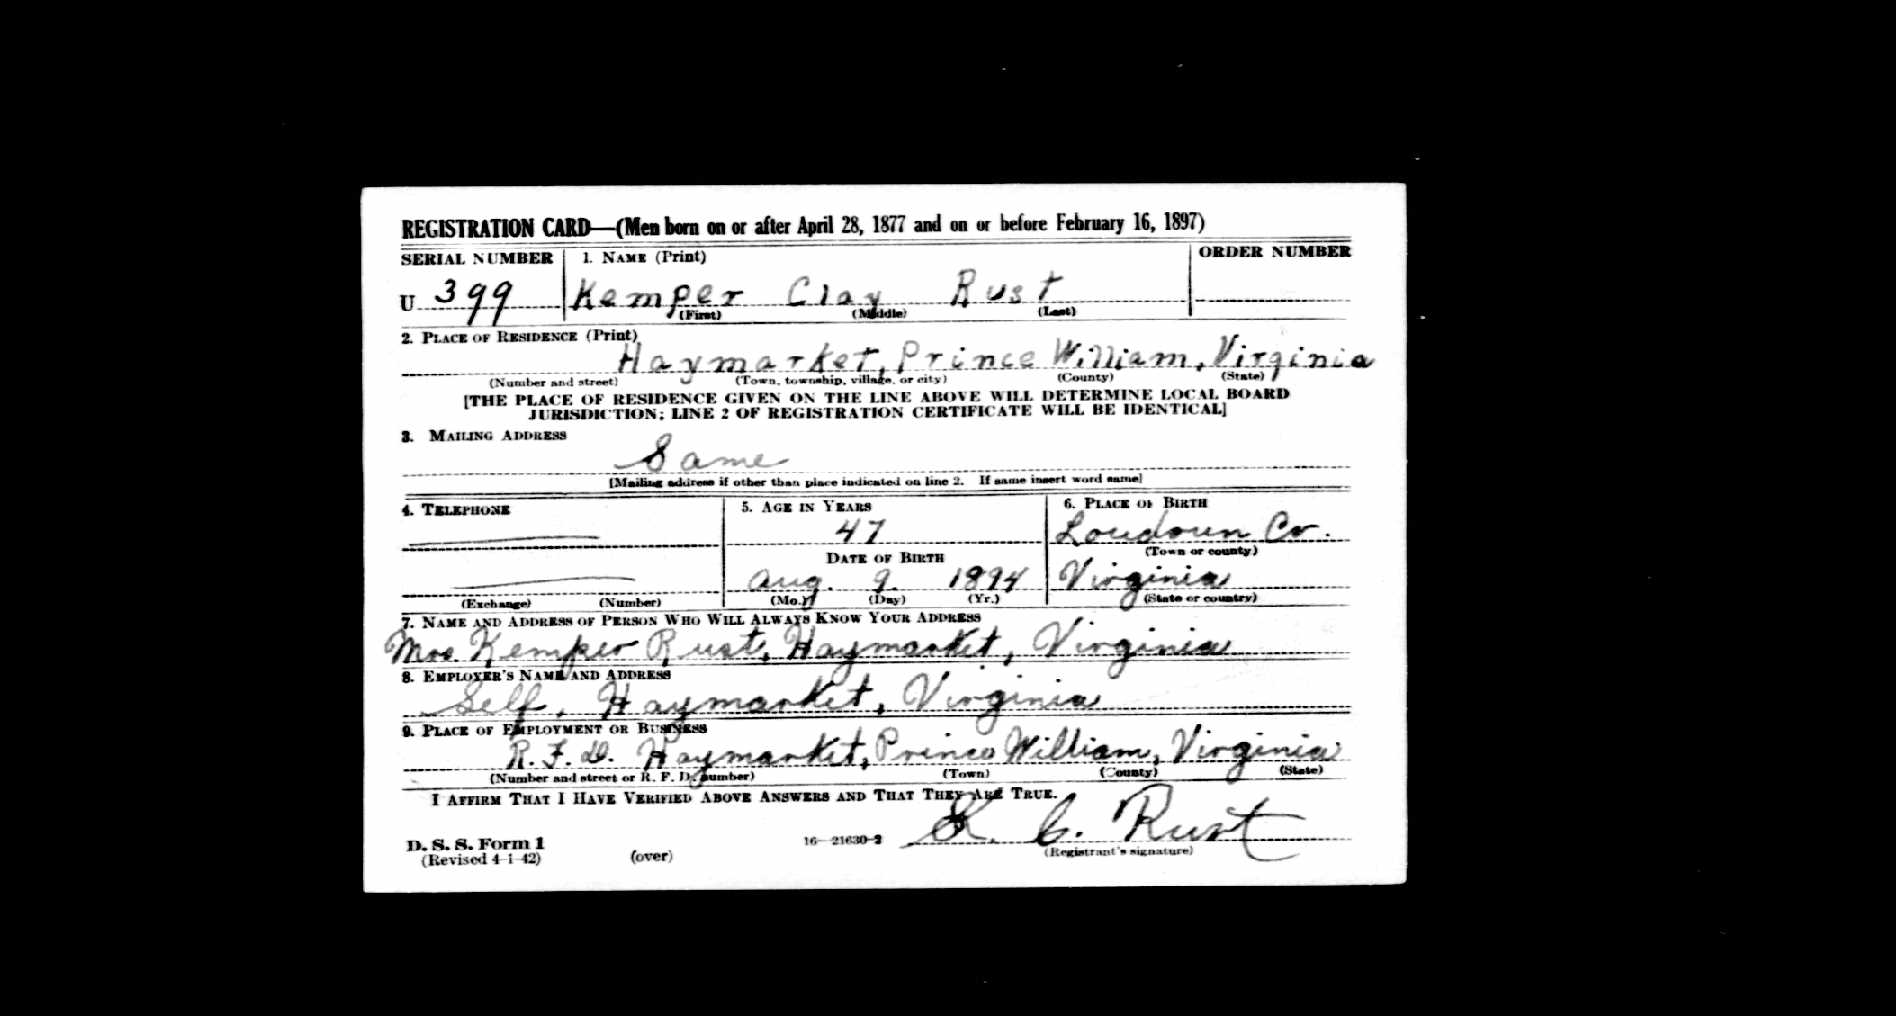 REGISTRATION CARD—(Men born on or after April 28, 1877 and on or before February 16, 1897)
SERIAL NUMBER 1. NAME (Print) ORDER NUMBER
U 399 Kemper Clay Rust
(First) (Middle) (Last)
2. PLACE OF RESIDENCE (Print)
Haymarket, Prince William, Virginia
(Number and street) (Town, township, village, or city) (County) (State)
[THE PLACE OF RESIDENCE GIVEN ON THE LINE ABOVE WILL DETERMINE LOCAL BOARD
JURISDICTION; LINE 2 OF REGISTRATION CERTIFICATE WILL BE IDENTICAL]
3. MAILING ADDRESS
Same
[Mailing address if other than place indicated on line 2. If same insert word same]
4. TELEPHONE 5. AGE IN YEARS 6. PLACE OF BIRTH
47 Loudoun Co.
(Town or county)
DATE OF BIRTH
Aug. 9. 1894 Virginia
(Exchange) (Number) (Mo.) (Day) (Yr.) (State or country)
7. NAME AND ADDRESS OF PERSON WHO WILL ALWAYS KNOW YOUR ADDRESS
Mrs. Kemper Rust, Haymarket, Virginia
8. EMPLOYER'S NAME AND ADDRESS
Self, Haymarket, Virginia
9. PLACE OF EMPLOYMENT OR BUSINESS
R. F. D. Haymarket, Prince William, Virginia
(Number and street or R. F. D. number) (Town) (County) (State)
I AFFIRM THAT I HAVE VERIFIED ABOVE ANSWERS AND THAT THEY ARE TRUE.
K. C. Rust
D. S. S. Form 1 16—21630-2 (Registrant's signature)
(Revised 4-1-42) (over)